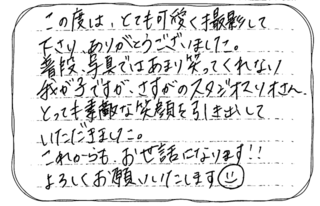 この度は、とても可愛く撮影して
下さり、ありがとうございました。
普段、写真ではあまり笑ってくれない
我が子ですが、さすがのスタジオスリオさん、
とっても素敵な笑顔を引き出して
いただきました。
これからも、お世話になります!!
よろしくお願いいたします